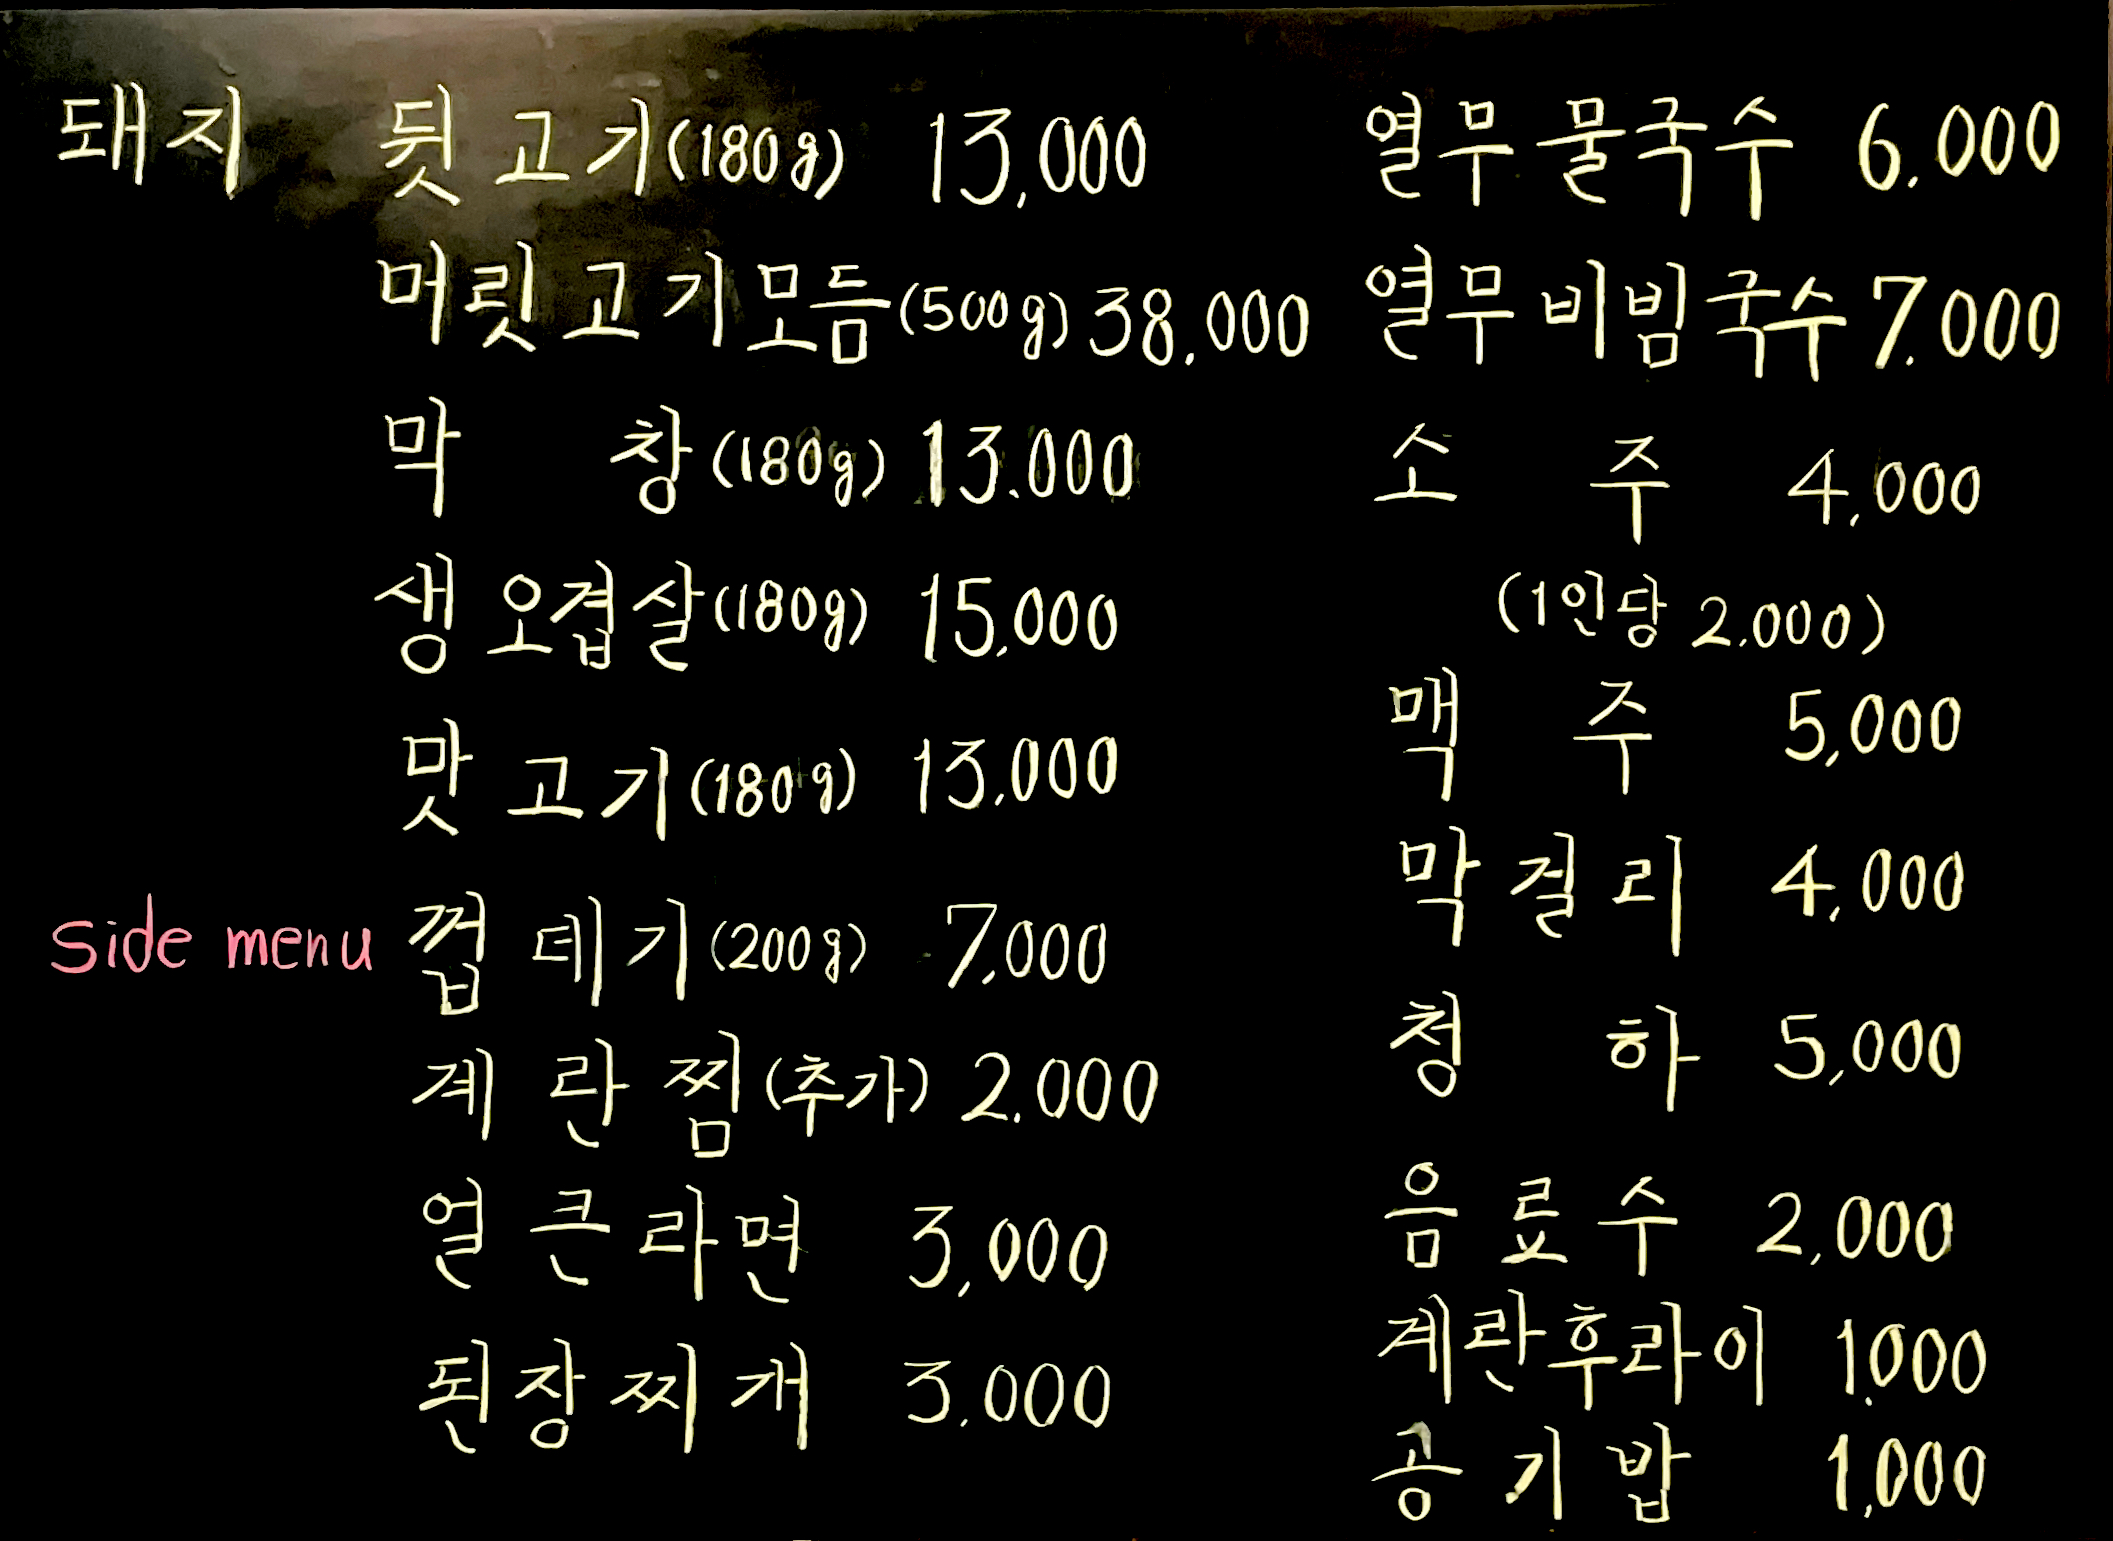 돼지 뒷고기(180g) 13,000
머릿고기모듬(500g) 38.000
막창(180g) 13.000
생오겹살(180g) 15,000
맛고기(180g) 13,000
side menu 껍데기(200g) 7,000
계란찜(추가) 2.000
얼큰라면 3,000
된장찌개 3.000
열무물국수 6.000
열무비빔국수 7.000
소주 4,000
(1인당 2.000)
맥주 5,000
막걸리 4,000
청하 5,000
음료수 2,000
계란후라이 1.000
공기밥 1,000